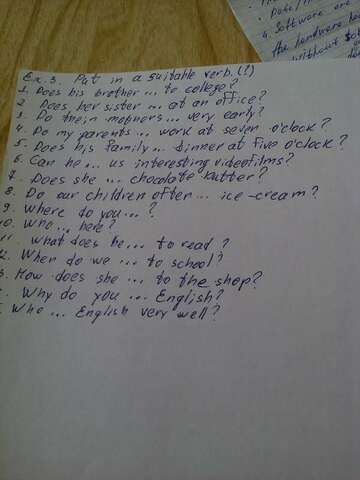 Ex. 3. Put in a suitable verb. (!)
1. Does his brother ... to college?
2. Does her sister ... at an office?
3. Do their mothers ... very early?
4. Do my parents ... work at seven o'clock?
5. Does his family ... dinner at five o'clock?
6. Can he ... us interesting videofilms?
7. Does she ... chocolate butter?
8. Do our children often ... ice-cream?
9. Where do you ... ?
10. Who ... here?
11. What does he ... to read?
2. When do we ... to school?
3. How does she ... to the shop?
Why do you ... English?
Who ... English very well?
Date/
4. Software are
the hardware
without